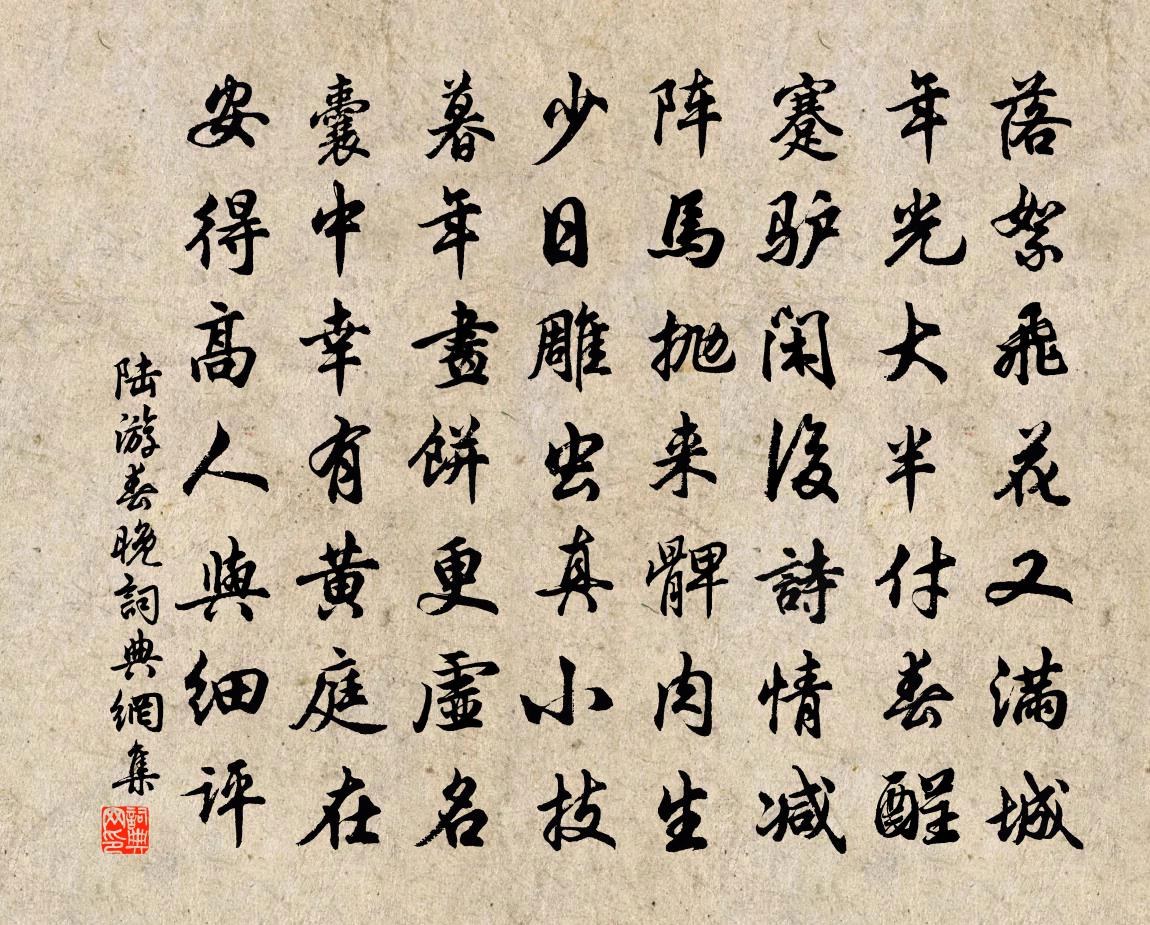 落絮飛花又滿城
年光大半付春酲
蹇驴閑後詩情减
阵馬抛来髀肉生
少日雕虫真小技
暮年畫餅更虛名
囊中幸有黄庭在
安得高人與細評
陆游春晚詞典網集
詞典網印